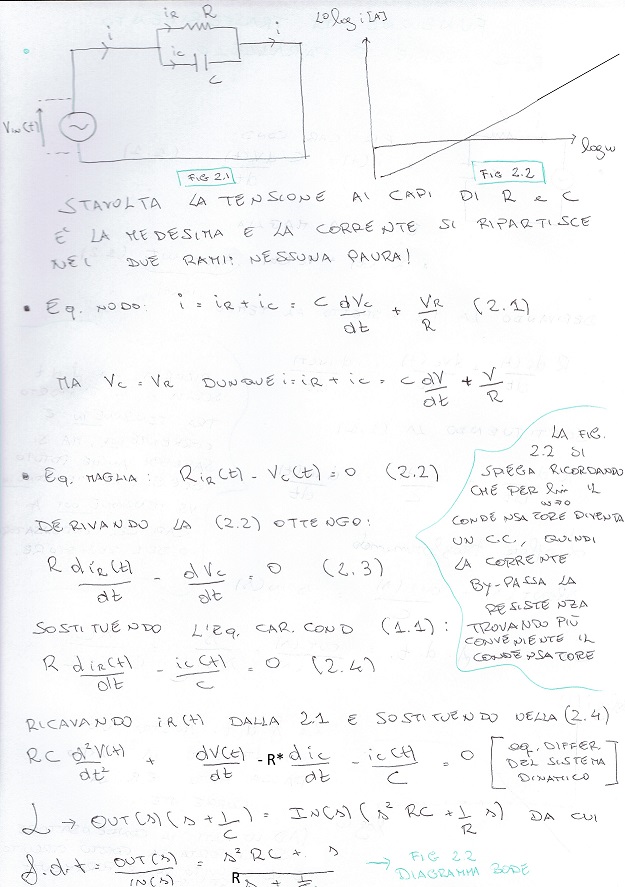 iR R
i
ic
C
i
Vin(t)
FIG 2.1
20 log i [A]
log ω
FIG 2.2
STAVOLTA LA TENSIONE AI CAPI DI R e C
E' LA MEDESIMA E LA CORRENTE SI RIPARTISCE
NEI DUE RAMI: NESSUNA PAURA!
• EQ. NODO: i = iR + ic = C dVc/dt + VR/R (2.1)
MA Vc = VR DUNQUE i = iR + ic = C dV/dt + V/R
• EQ. MAGLIA: R iR(t) - Vc(t) = 0 (2.2)
DERIVANDO LA (2.2) OTTENGO:
R diR(t)/dt - dVc/dt = 0 (2.3)
SOSTITUENDO L'EQ. CAR. COND (1.1):
R diR(t)/dt - ic(t)/C = 0 (2.4)
LA FIG.
2.2 SI
SPIEGA RICORDANDO
CHE PER lim IL
ω→∞
CONDENSATORE DIVENTA
UN C.C., QUINDI
LA CORRENTE
BY-PASSA LA
RESISTENZA
TROVANDO PIÙ
CONVENIENTE IL
CONDENSATORE
RICAVANDO iR(t) DALLA 2.1 E SOSTITUENDO NELLA (2.4)
RC d²V(t)/dt² + dV(t)/dt - R* dic/dt - ic(t)/C = 0 [eq. DIFFER
DEL SISTEMA
DINAMICO]
L → OUT(s) (s + 1/C) = IN(s) (s² RC + 1/R s) DA CUI
f.d.t = OUT(s)/IN(s) = s² RC + s / R s + 1/C
→ FIG 2.2
DIAGRAMMA BODE